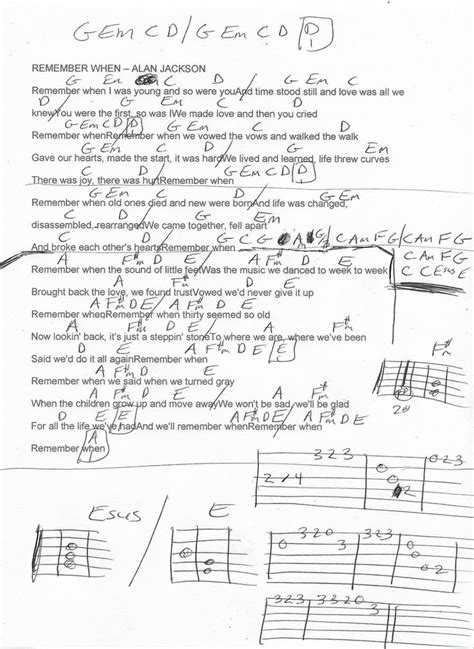 G Em C D / G Em C D D
REMEMBER WHEN – ALAN JACKSON
G Em C D G Em C
Remember when I was young and so were youAnd time stood still and love was all we
D G Em C D
knewYou were the first, so was IWe made love and then you cried
G Em C D D G Em C D
Remember whenRemember when we vowed the vows and walked the walk
G Em C D G Em
Gave our hearts, made the start, it was hardWe lived and learned, life threw curves
C D G Em C D D
There was joy, there was hurtRemember when
G Em C D G Em
Remember when old ones died and new were bornAnd life was changed,
C D G Em
disassembled, rearrangedWe came together, fell apart
C D G C G C Am F G / C Am F G
And broke each other's heartsRemember when
C Am F G
C C Esus E
A F#m D E A F#m
Remember when the sound of little feetWas the music we danced to week to week
D E A F#m D E
Brought back the love, we found trustVowed we'd never give it up
A F#m D E A F#m D E
Remember whenRemember when thirty seemed so old
A F#m D E A F#m
Now lookin' back, it's just a steppin' stoneTo where we are, where we've been
D E A F#m D E E
Said we'd do it all againRemember when
F#m
A F#m D E
Remember when we said when we turned gray
2nd
A F#m D E A F#m
When the children grow up and move awayWe won't be sad, we'll be glad
D E E A F#m D E A F#m D E
For all the life we've hadAnd we'll remember whenRemember when
A
Remember when
3 2 3 0 2 3
2/4 0 2
Esus / E
0 3 2 0 3 3 2 3 0 0 2
3 2 3 3 3 2 0